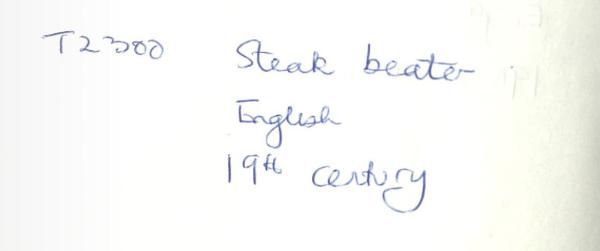 T2300 Steak beater
English
19th century